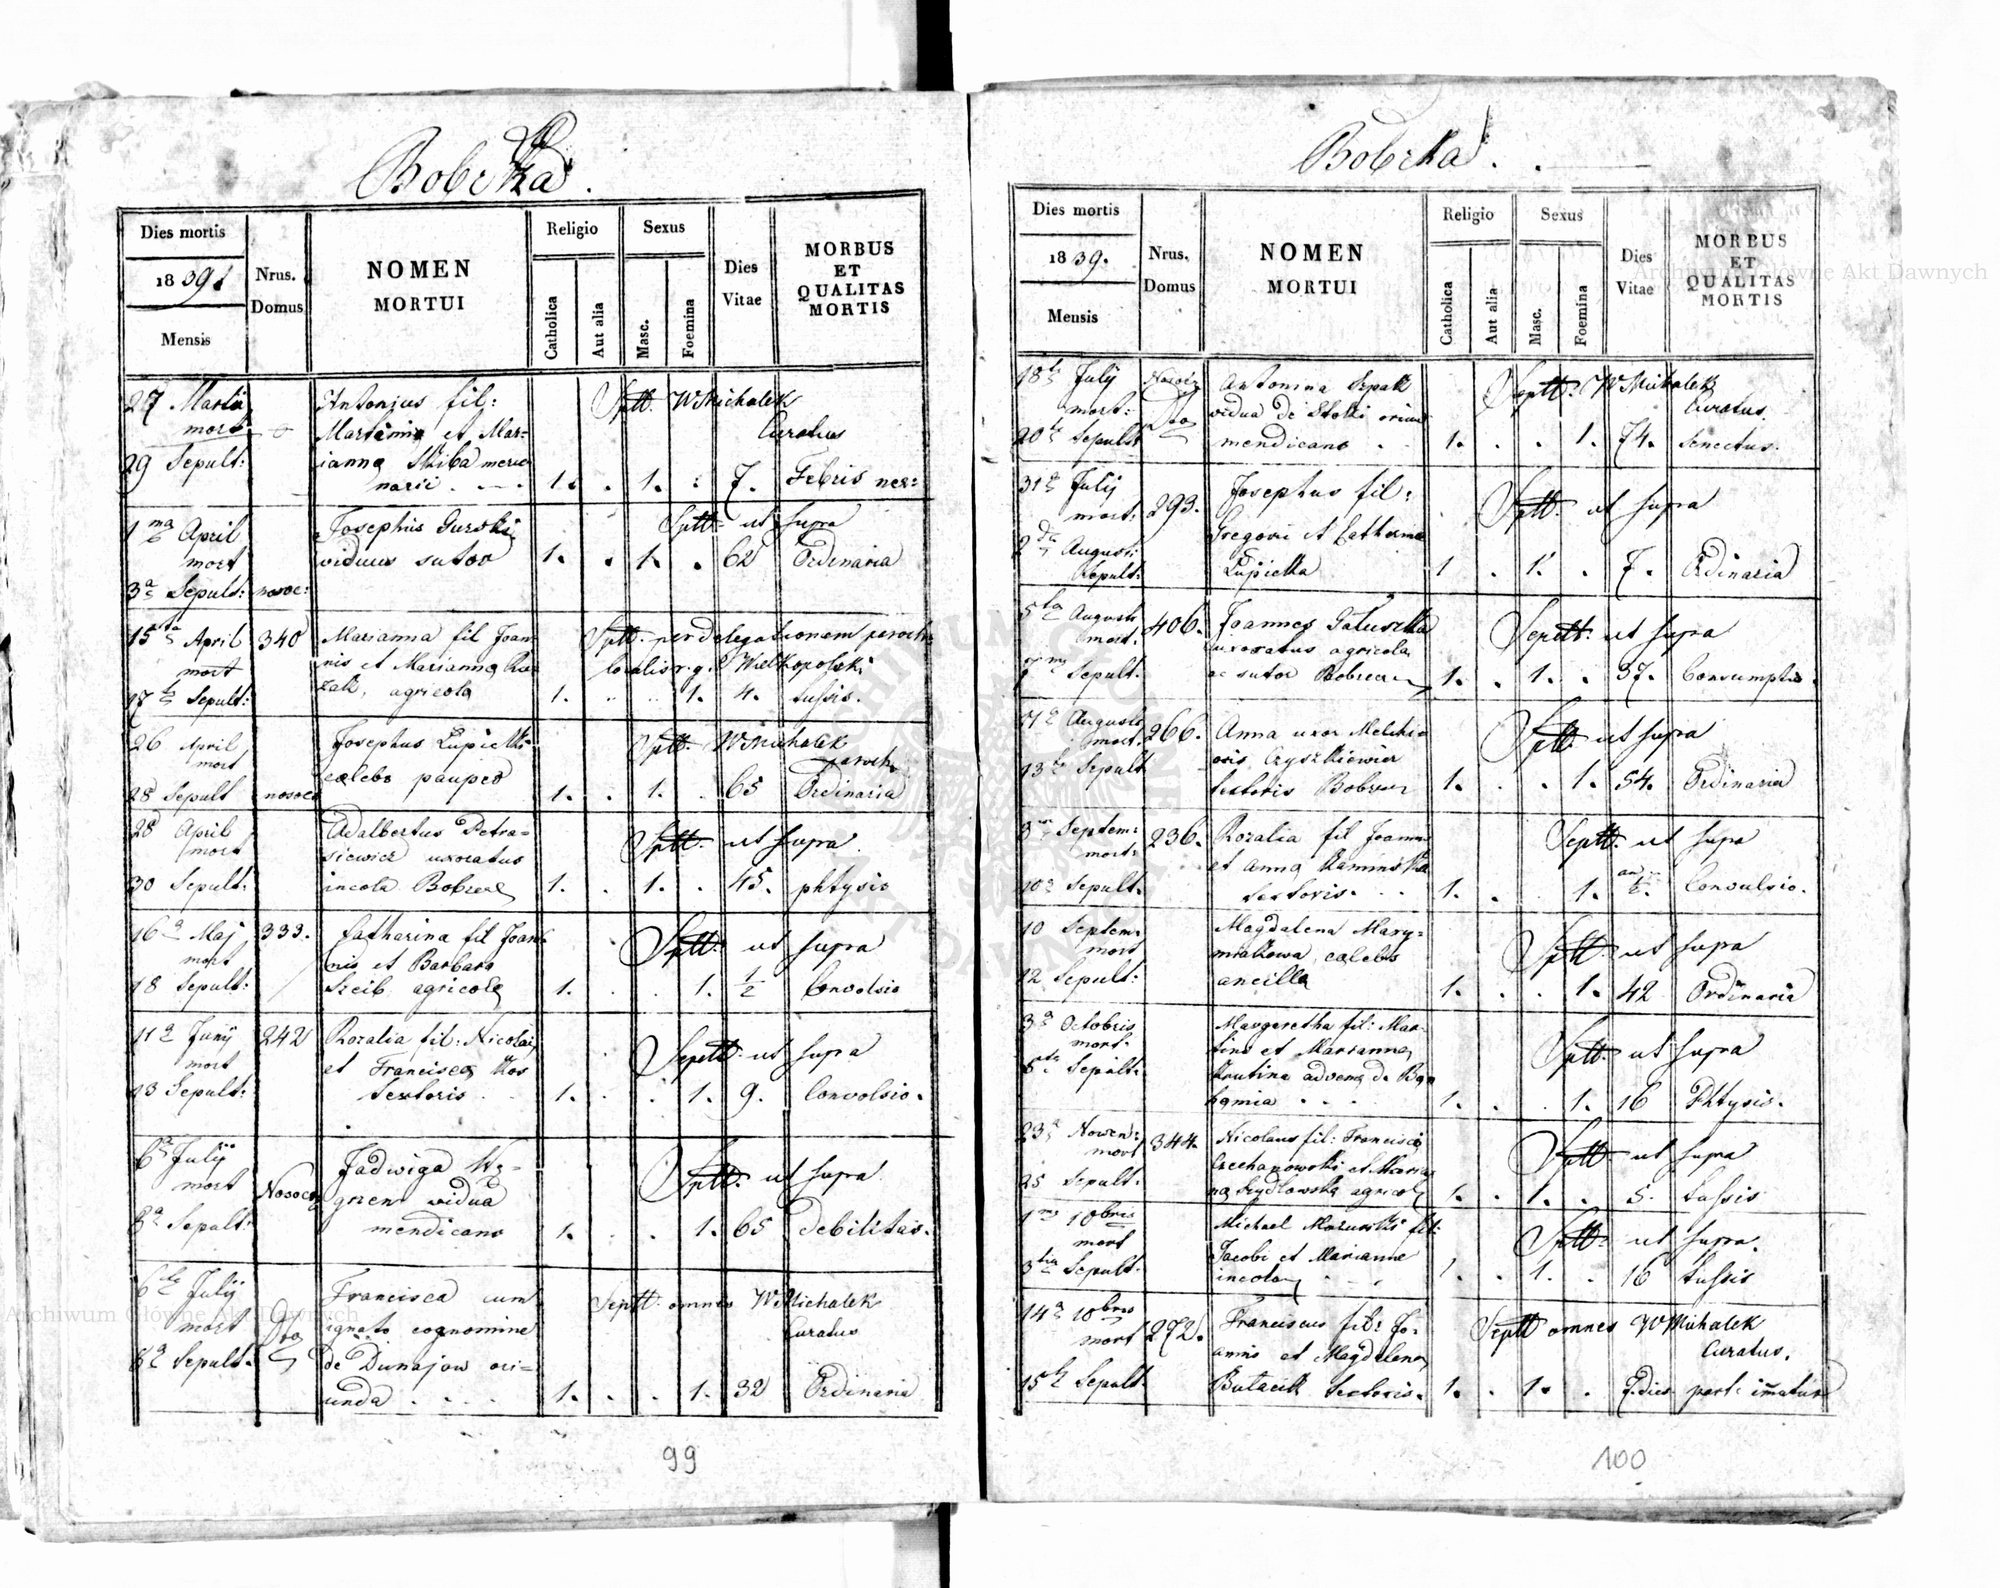 Bobrka.
Dies mortis
1839.
Mensis
Nrus.
Domus
NOMEN
MORTUI
Religio
Catholica
Aut alia
Sexus
Masc.
Foemina
Dies
Vitae
MORBUS
ET
QUALITAS
MORTIS
27 Martii
mort:
29 Sepult:
Antonius fil:
et Mar-
ianna Skiba merce
narii
Sptt. W Michalek
Curatus
1. . 1. 7. Febris ner:
1ma April
mort
3a Sepult: nosoc:
Josephus Gurski
viduus sutor
Sptt. ut supra
1. . 1. . 62 Ordinaria
15ta April 340
mort
17 Sepult:
Marianna fil Joan
nis et Marianna
agricola
Sptt. per delegationem paroch
localis r. g. Wielkopolski
1. 1. 4. tussis.
26 April
mort
28 Sepult nosoc
Josephus Łupicki
caelebs pauper
Sptt. W Michalek
paroch
1. . 1. . 65 Ordinaria
28 April
mort
30 Sepult:
Adalbertus Petra=
siewicz uxoratus
incola Bobrece
Sptt. ut supra.
1. . 1. . 45. phtysis
16a Maj 333.
mort
18 Sepult:
Catharina fil Joan
nis et Barbara
Szeib agricola
Sptt. ut supra
1. . . 1. 1/2 Convolsio
11a Junij 242
mort
13 Sepult:
Rozalia fil: Nicolai
et Francisca Kos
textoris
Septt. ut supra
1. . . 1. 9. Convolsio.
6a Julij
mort Nosoco
8a Sepult:
Jadwiga
vidua
mendicans
Sptt. ut supra
1. . . 1. 65 debilitas.
6ta Julij
mort Dto
8a Sepult.
Francisca cum
ignoto cognomine
de Dunajow ori=
unda . . . .
Septt. omnes W Michalek
Curatus
1. . . 1. 32 Ordinaria
99
Bobrka.
Dies mortis
1839.
Mensis
Nrus.
Domus
NOMEN
MORTUI
Religio
Catholica
Aut alia
Sexus
Masc.
Foemina
Dies
Vitae
MORBUS
ET
QUALITAS
MORTIS
18 July
mort: Dto
20 Sepult:
Antonina Szpak
vidua de
mendicans . .
Septt. W Michalek
Curatus.
1. . . 1. 74. Senectus.
31a July
mort. 293.
2da Augusti
Sepult:
Josephus fil:
Gregorii et Catharina
Łupicka
Sptt. ut supra
1 . 1. . 7. Ordinaria
5ta Augusti
mort. 406.
Sepult.
Joannes Gałuszka
uxoratus agricola
ac sutor Bobrecen
Septt. ut supra
1. . 1. . 37. Consumptio.
11a Augusti
mort. 266.
13 Sepult
Anna uxor Melchi=
oris Czyszkiewicz
textoris Bobrecen
Sptt. ut supra
1. . . 1. 54. Ordinaria
Septem:
mort: 236.
10a Sepult.
Rozalia fil Joannis
et Anna Kaminska
textoris. . .
Septt. ut supra
1. . 1. Convulsio.
10 Septem:
mort
12 Sepult:
Magdalena Mary=
miakowa, caelebs
ancilla
Sptt. ut supra
1. . . 1. 42 Ordinaria
3a Octobris
mort.
Sepult.
Margeretha fil: Mar=
tini et Marianna
advena de
Sptt. ut supra
1. . . 1. 16 Phtysis.
23a Novem:
mort 344.
25 Sepult:
Nicolaus fil: Francisci
Czechanowski et Maria
na Szydlowska agricol
Sptt ut supra
1. . 1. . 5. tussis
1ma 10bris
mort
3tia Sepult.
Michael Mazurski fil:
Jacobi et Marianne
incola
Sptt. ut supra.
1. . 1. . 16 tussis
14a 10bris
mort 272.
15ta Sepult.
Franciscus fil: Jo=
annis et Magdalena
Butacik textoris.
Septt omnes W Michalek
Curatus.
1. . 1. . 7. dies part: imatur
100
Archiwum Główne Akt Dawnych
Archiwum Główne Akt Dawnych